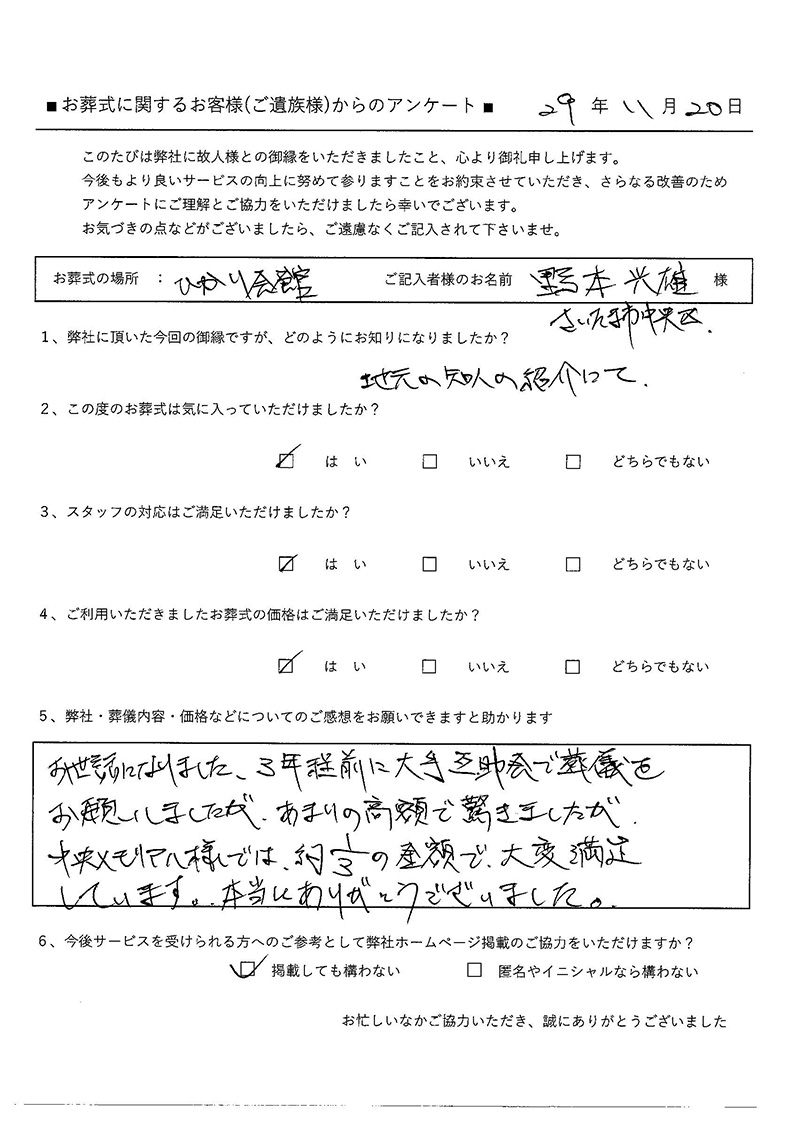 ■お葬式に関するお客様(ご遺族様)からのアンケート■ 29年11月20日
このたびは弊社に故人様との御縁をいただきましたこと、心より御礼申し上げます。
今後もより良いサービスの向上に努めて参りますことをお約束させていただき、さらなる改善のため
アンケートにご理解とご協力をいただけましたら幸いでございます。
お気づきの点などがございましたら、ご遠慮なくご記入されて下さいませ。
お葬式の場所 : ひかり会館 ご記入者様のお名前 本 興雄 様
さいたま市中央区.
1、弊社に頂いた今回の御縁ですが、どのようにお知りになりましたか?
地元の知人の紹介にて.
2、この度のお葬式は気に入っていただけましたか?
☑ はい □ いいえ □ どちらでもない
3、スタッフの対応はご満足いただけましたか?
☑ はい □ いいえ □ どちらでもない
4、ご利用いただきましたお葬式の価格はご満足いただけましたか?
☑ はい □ いいえ □ どちらでもない
5、弊社・葬儀内容・価格などについてのご感想をお願いできますと助かります
お世話になりました、3年程前に大手互助会で葬儀を
お願いしましたが、あまりの高額で驚きましたが、
中央メモリアル様では、約1/3の金額で、大変満足
しています。本当にありがとうございました。
6、今後サービスを受けられる方へのご参考として弊社ホームページ掲載のご協力をいただけますか?
☑ 掲載しても構わない □ 匿名やイニシャルなら構わない
お忙しいなかご協力いただき、誠にありがとうございました